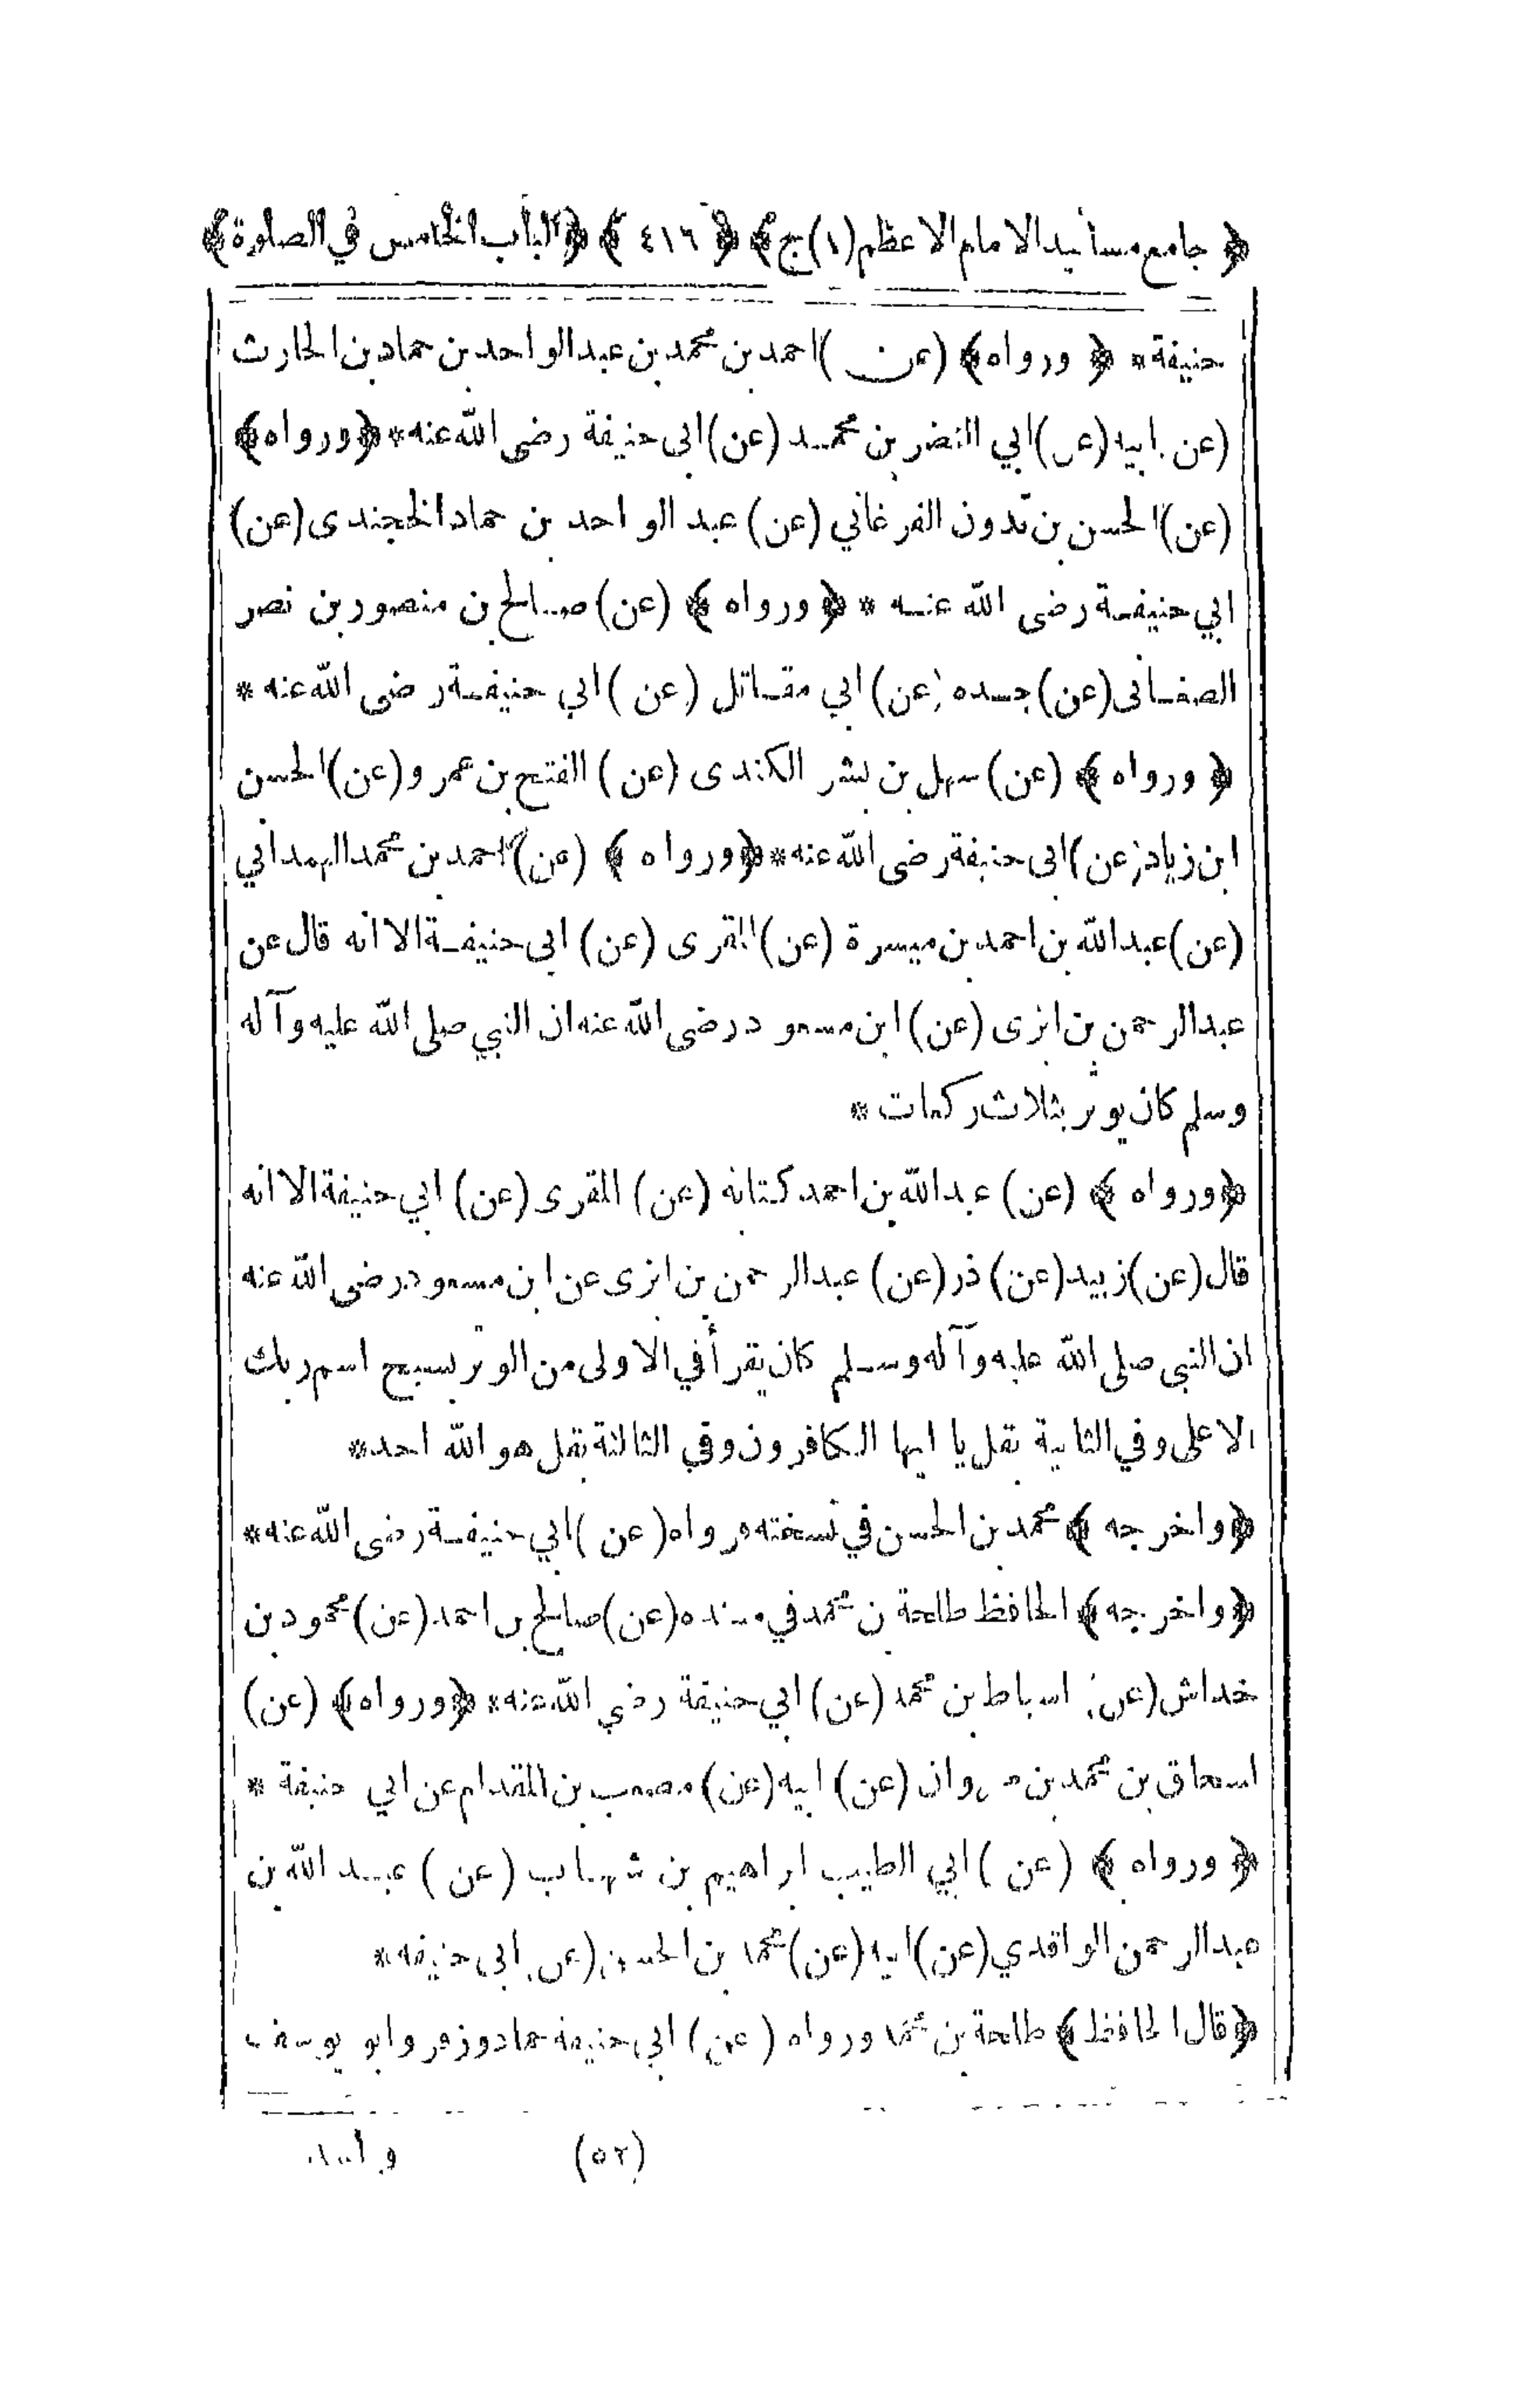 ﴿ جامع مسانيد الامام الاعظم (١) ج ﴾ ﴿ ٤١٦ ﴾ ﴿ الباب الخامس في الصلوة ﴾
حنيفة * ﴿ ورواه ﴾ (عن) احمد بن محمد بن عبد الواحد بن حماد بن الحارث
(عن) ابيه (عن) ابي النضر بن محمد (عن) ابى حنيفة رضى الله عنه * ﴿ ورواه ﴾
(عن) الحسن بن الفرغاني (عن) عبد الواحد بن حماد الخجندى (عن)
ابي حنيفة رضى الله عنه * ﴿ ورواه ﴾ (عن) صالح بن منصور بن نصر
الصغانى (عن) جده (عن) ابي مقاتل (عن) ابي حنيفة رضى الله عنه *
﴿ ورواه ﴾ (عن) سهل بن بشر الكندى (عن) الفتح بن عمرو (عن) الحسن
ابن زياد (عن) ابى حنيفة رضى الله عنه * ﴿ ورواه ﴾ (عن) احمد بن محمد الهمداني
(عن) عبد الله بن احمد بن ميسرة (عن) المقرى (عن) ابى حنيفة الا انه قال عن
عبد الرحمن بن ابزى (عن) ابن مسعود رضى الله عنه ان النبي صلى الله عليه وآله
وسلم كان يوتر بثلاث ركعات *
﴿ ورواه ﴾ (عن) عبد الله بن احمد كتابة (عن) المقرى (عن) ابي حنيفة الا انه
قال (عن) زبيد (عن) ذر (عن) عبد الرحمن بن ابزى عن ابن مسعود رضى الله عنه
ان النبى صلى الله عليه وآله وسلم كان يقرأ في الاولى من الوتر بسبح اسم ربك
الاعلى وفي الثانية بقل يا ايها الكافرون وفي الثالثة بقل هو الله احد *
﴿ واخرجه ﴾ محمد بن الحسن في نسخته فرواه (عن) ابي حنيفة رضى الله عنه *
﴿ واخرجه ﴾ الحافظ طلحة بن محمد في مسنده (عن) صالح بن احمد (عن) محمود بن
خداش (عن) اسباط بن محمد (عن) ابي حنيفة رضي الله عنه * ﴿ ورواه ﴾ (عن)
اسحاق بن محمد بن مروان (عن) ابيه (عن) مصعب بن المقدام عن ابي حنيفة *
﴿ ورواه ﴾ (عن) ابي الطيب ابراهيم بن شهاب (عن) عبد الله بن
عبد الرحمن الواقدي (عن) ابيه (عن) محمد بن الحسن (عن) ابى حنيفه *
﴿ قال الحافظ ﴾ طلحة بن محمد ورواه (عن) ابي حنيفة حماد وزفر وابو يوسف
(٥٢)